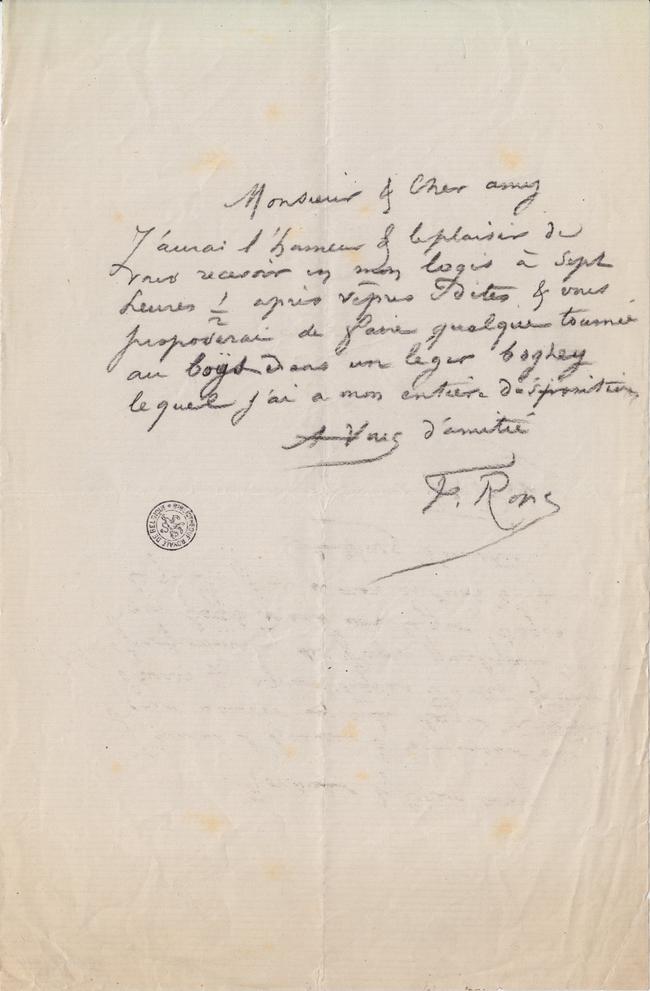 Monsieur & Cher amy
J'aurai l'honneur & le plaisir de
vous recevoir en mon logis à Sept
heures 1/2 après vêpres Dites & vous
proposerai de faire quelque tournée
au boys dans un leger boghey
lequel j'ai a mon entière disposition
A Vous d'amitié
F. Rops
BIBLIOTHEQUE ROYALE DE BELGIQUE